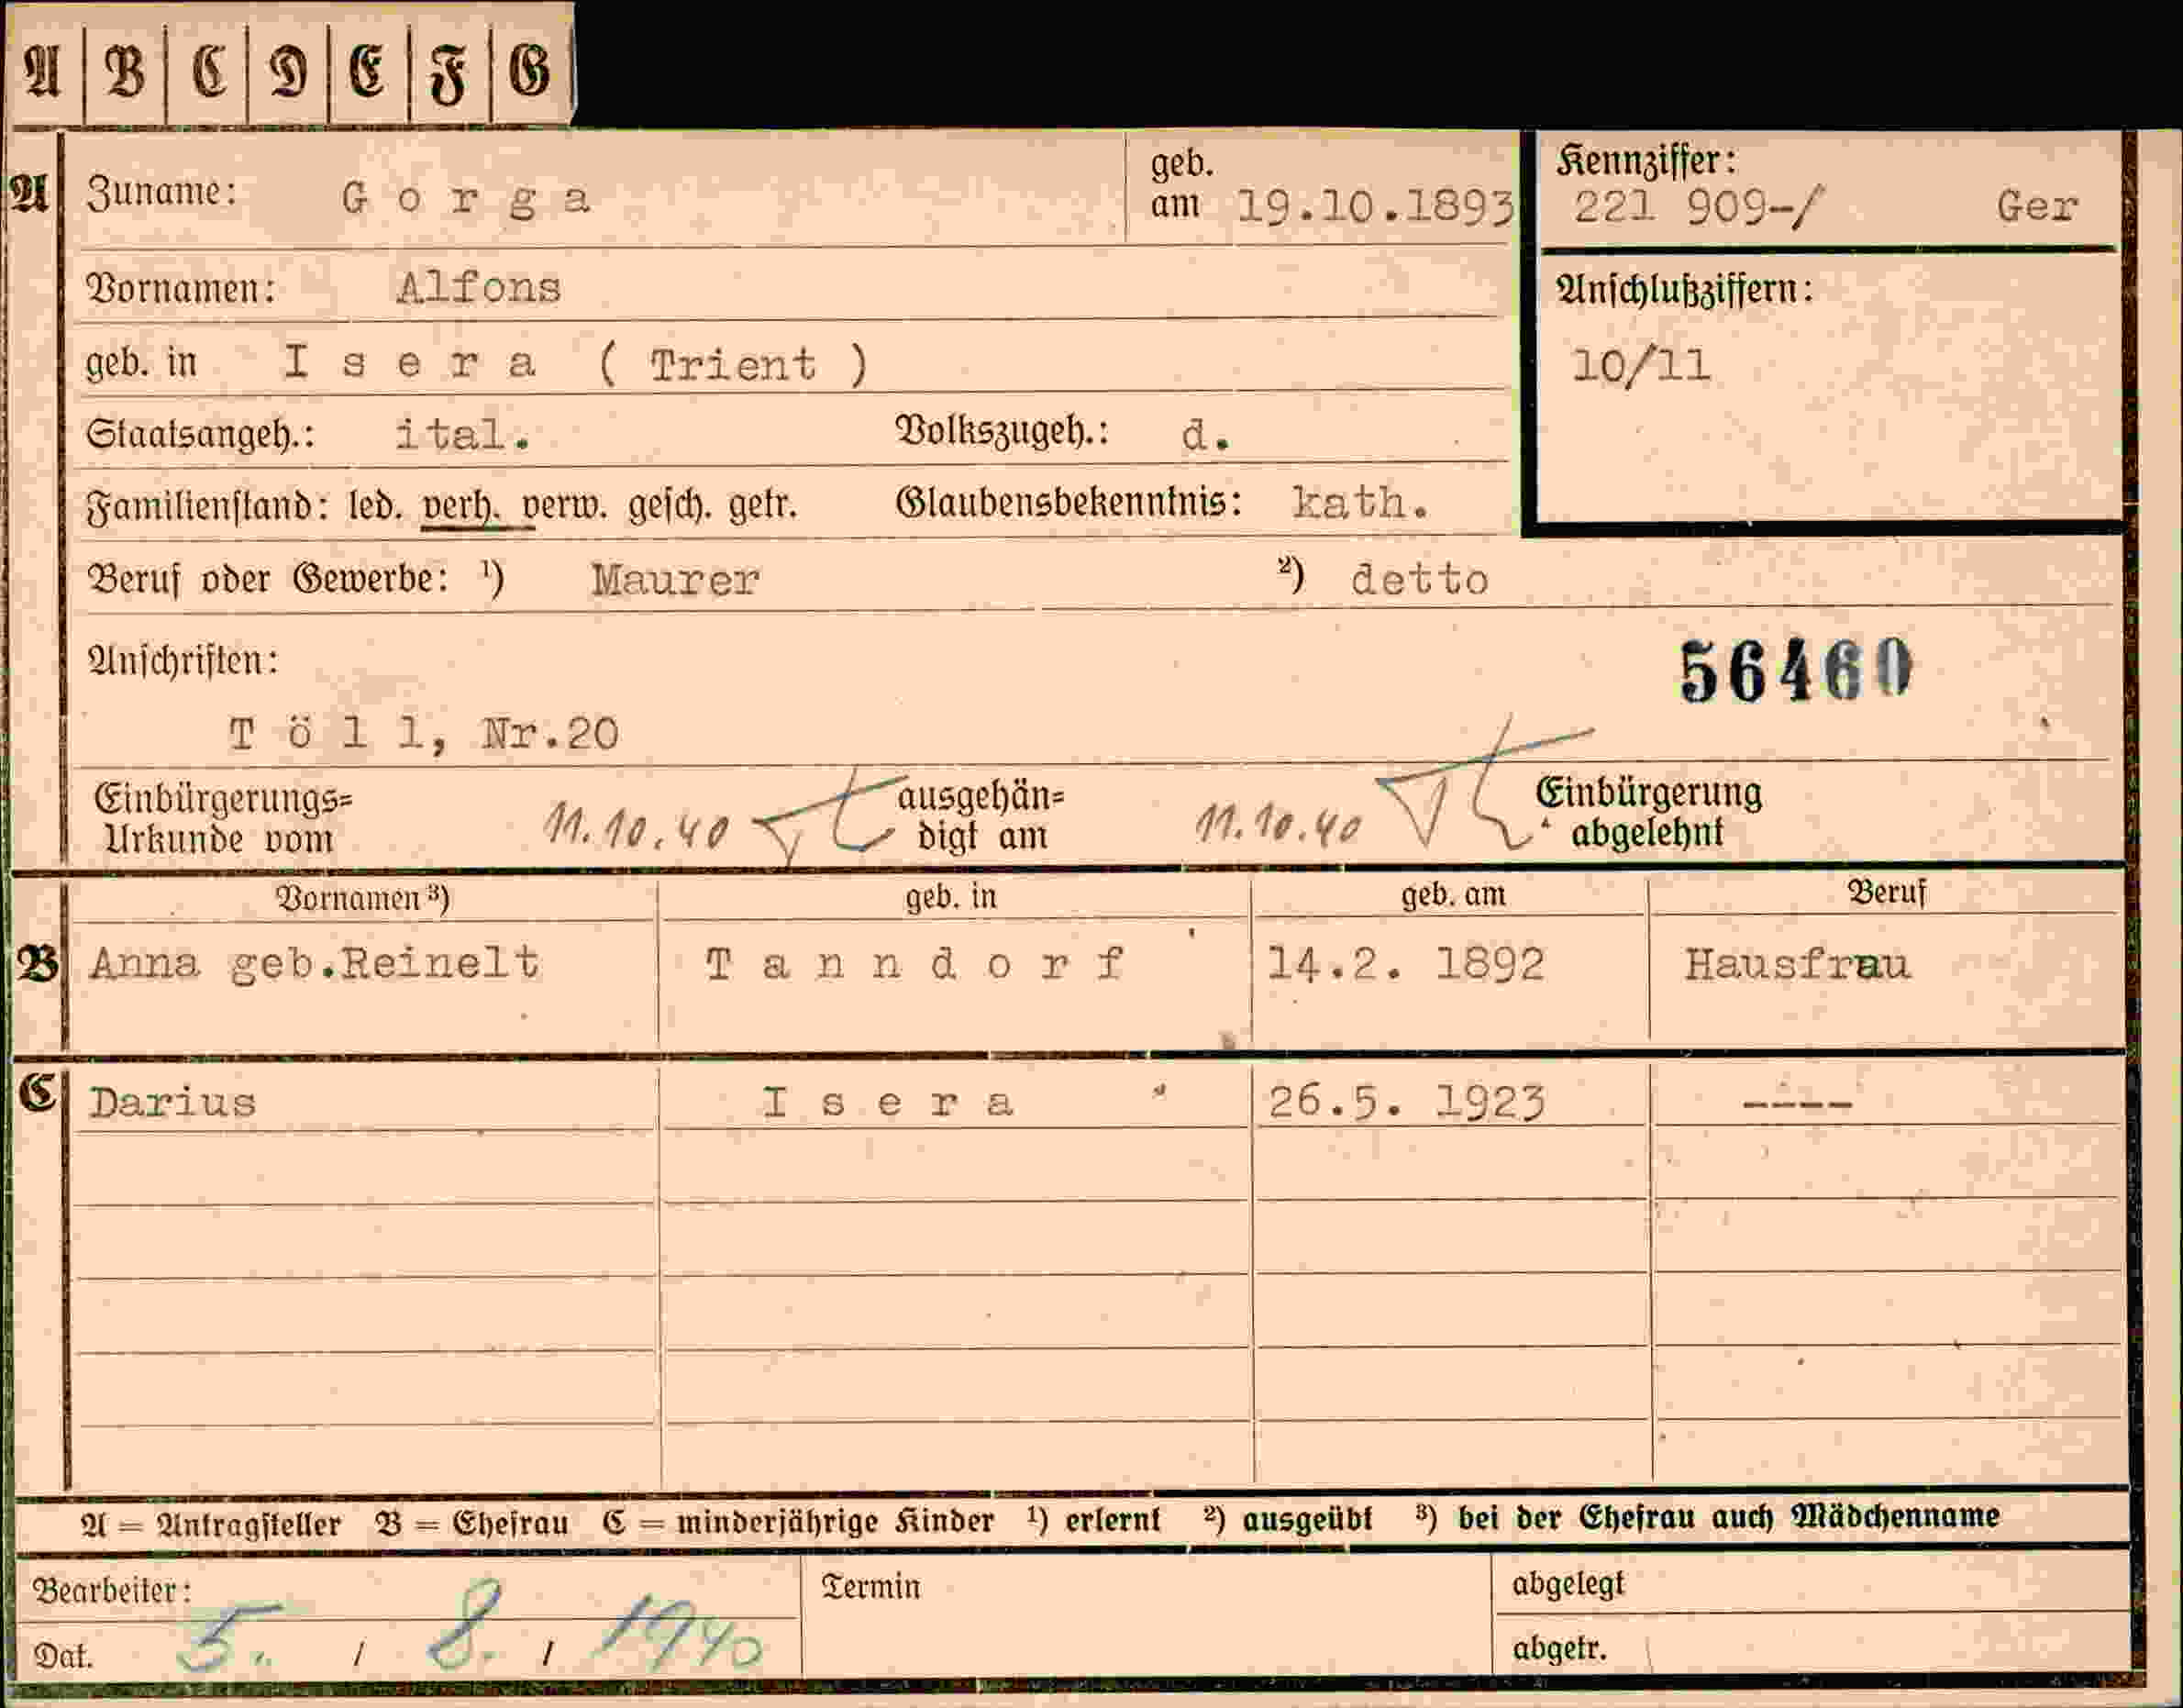 A B C D E F G
A Zuname: Gorga geb. am 19.10.1893
Kennziffer:
221 909-/ Ger
Vornamen: Alfons
Anschlußziffern:
10/11
geb. in Isera ( Trient )
Staatsangeh.: ital. Volkszugeh.: d.
Familienstand: led. verh. verw. gesch. getr. Glaubensbekenntnis: kath.
Beruf oder Gewerbe: ¹) Maurer ²) detto
Anschriften:
56460
Töll, Nr.20
Einbürgerungs=
Urkunde vom 11.10.40
ausgehän=
digt am 11.10.40
Einbürgerung
abgelehnt
Vornamen ³) geb. in geb. am Beruf
B Anna geb.Reinelt Tanndorf 14.2. 1892 Hausfrau
C Darius Isera 26.5. 1923 ----
A = Antragsteller B = Ehefrau C = minderjährige Kinder ¹) erlernt ²) ausgeübt ³) bei der Ehefrau auch Mädchenname
Bearbeiter: Termin abgelegt
Dat. 5. / 8. / 1940 abgetr.